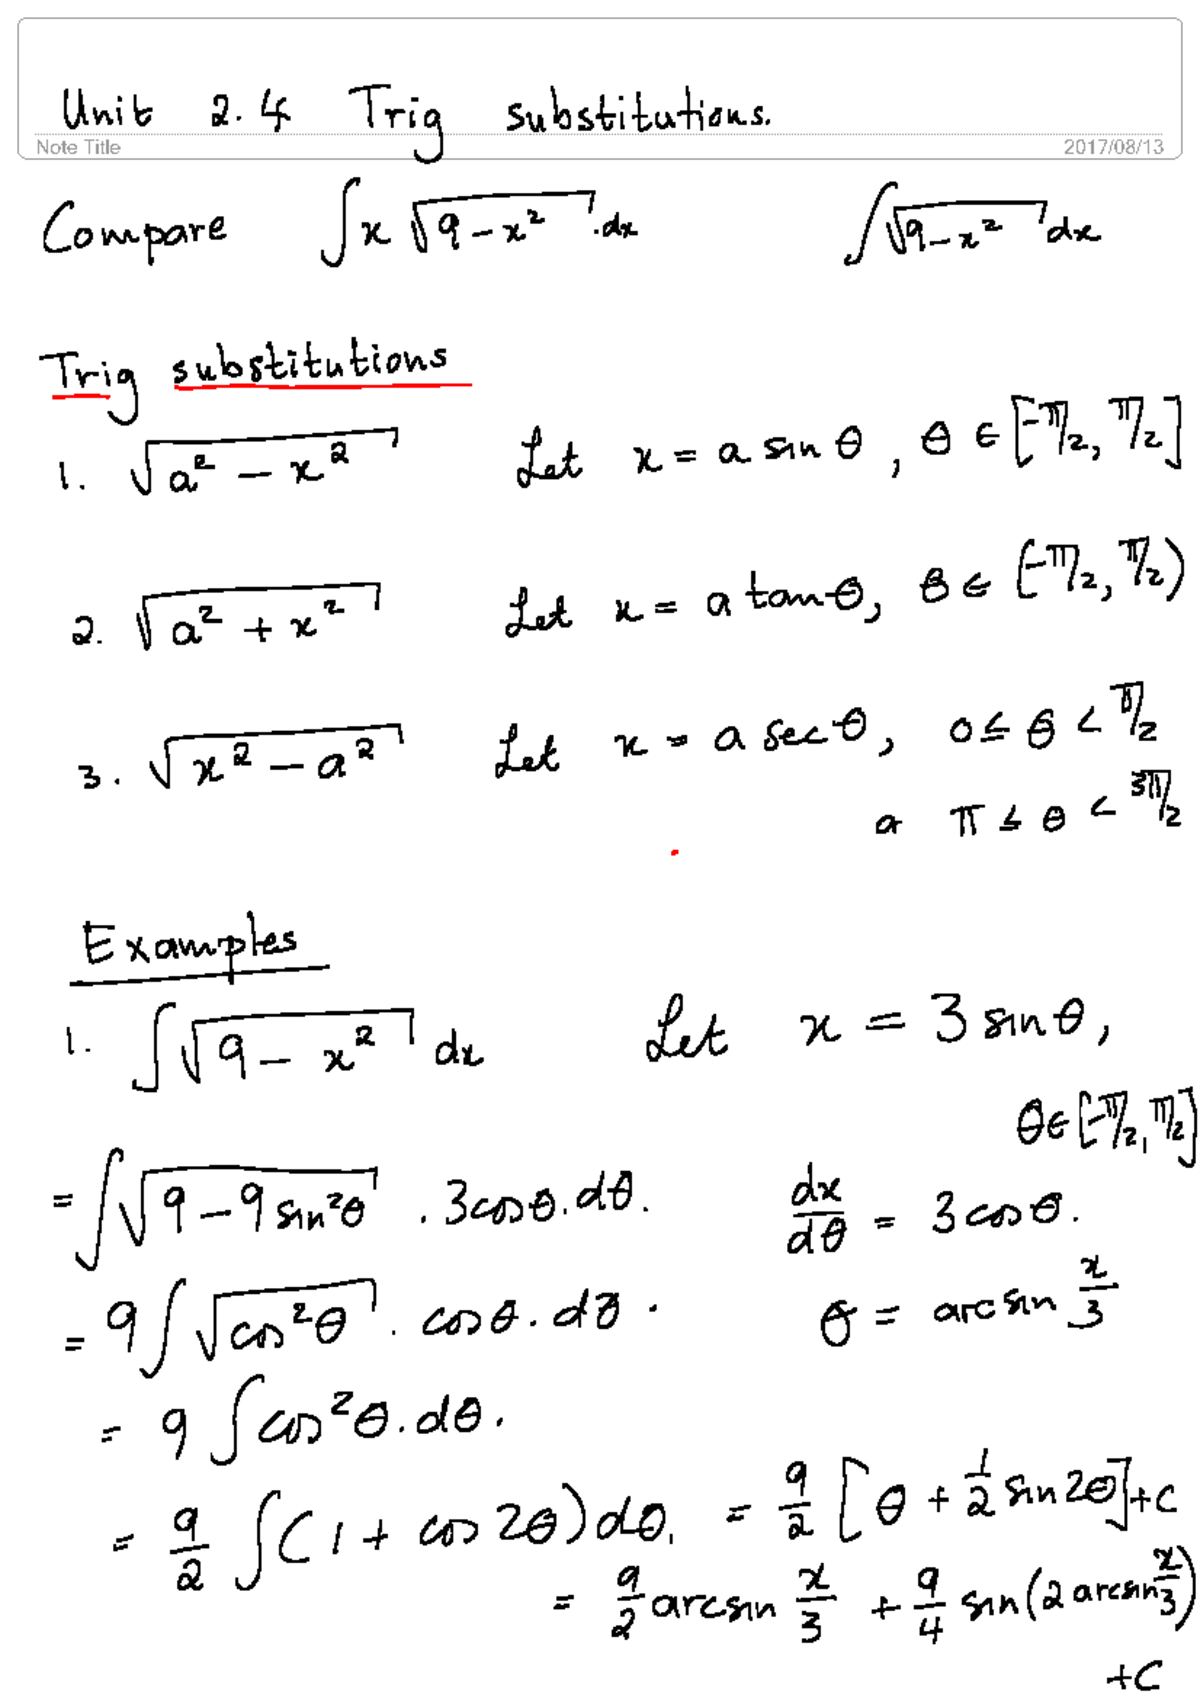 Unit 2.4 Trig substitutions.
Note Title 2017/08/13
Compare ∫ x √(9 - x²) . dx ∫ √(9 - x²) dx
Trig substitutions
1. √(a² - x²) Let x = a sin θ, θ ∈ [-π/2, π/2]
2. √(a² + x²) Let x = a tan θ, θ ∈ (-π/2, π/2)
3. √(x² - a²) Let x = a sec θ, 0 ≤ θ < π/2
or π ≤ θ < 3π/2
Examples
1. ∫ √(9 - x²) dx Let x = 3 sin θ,
θ ∈ [-π/2, π/2]
= ∫ √(9 - 9 sin²θ) . 3 cos θ . dθ. dx/dθ = 3 cos θ.
= 9 ∫ √(cos²θ) . cos θ . dθ . θ = arcsin x/3
= 9 ∫ cos²θ . dθ.
= 9/2 ∫ (1 + cos 2θ) dθ. = 9/2 [θ + 1/2 sin 2θ] + C
= 9/2 arcsin x/3 + 9/4 sin(2 arcsin x/3)
+C